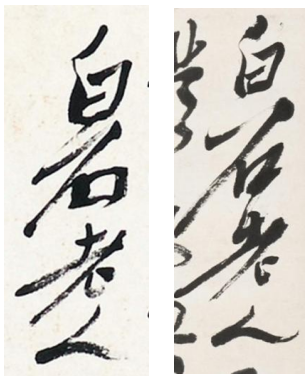 白石老人
白石老人